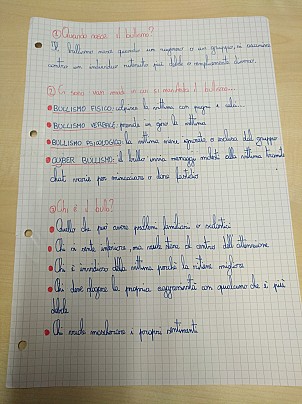 ① Quando nasce il bullismo?
Il bullismo nasce quando un ragazzo o un gruppo, si accanisce
contro un individuo ritenuto più debole o semplicemente diverso.
② Ci sono vari modi in cui si manifesta il bullismo...
• BULLISMO FISICO: colpisce la vittima con pugni e calci...
• BULLISMO VERBALE: prende in giro la vittima
• BULLISMO PSICOLOGICO: la vittima viene ignorata o esclusa dal gruppo
• CYBER BULLISMO: il bullo invia messaggi molesti alla vittima tramite
chat varie per minacciare o dare fastidio
③ Chi è il bullo?
• Quello che può avere problemi familiari o scolastici
• Chi si sente inferiore, ma vuole stare al centro dell'attenzione
• Chi è invidioso della vittima perché la ritiene migliore
• Chi deve sfogare la propria aggressività con qualcuno che è più
debole
• Chi vuole mascherare i propri sentimenti